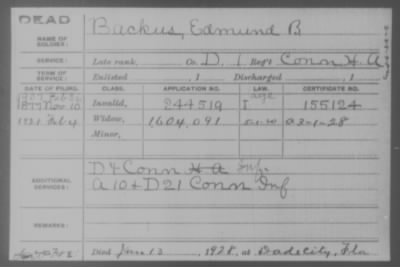 DEAD
NAME OF SOLDIER: Backus, Edmund B
SERVICE: Late rank, Co. D, 1 Reg't Conn H. A.
TERM OF SERVICE: Enlisted , 1 Discharged , 1
DATE OF FILING. CLASS. APPLICATION NO. LAW. CERTIFICATE NO.
1907 Feb
age
1877 Nov 10 Invalid, 244519 I 155124
Widow, 1,604,091
Minor,
ADDITIONAL SERVICES: D 4 Conn H A Inf.
A 10 + D 21 Conn Inf
REMARKS:
Died June 13, 1928, at Dade City, Fla